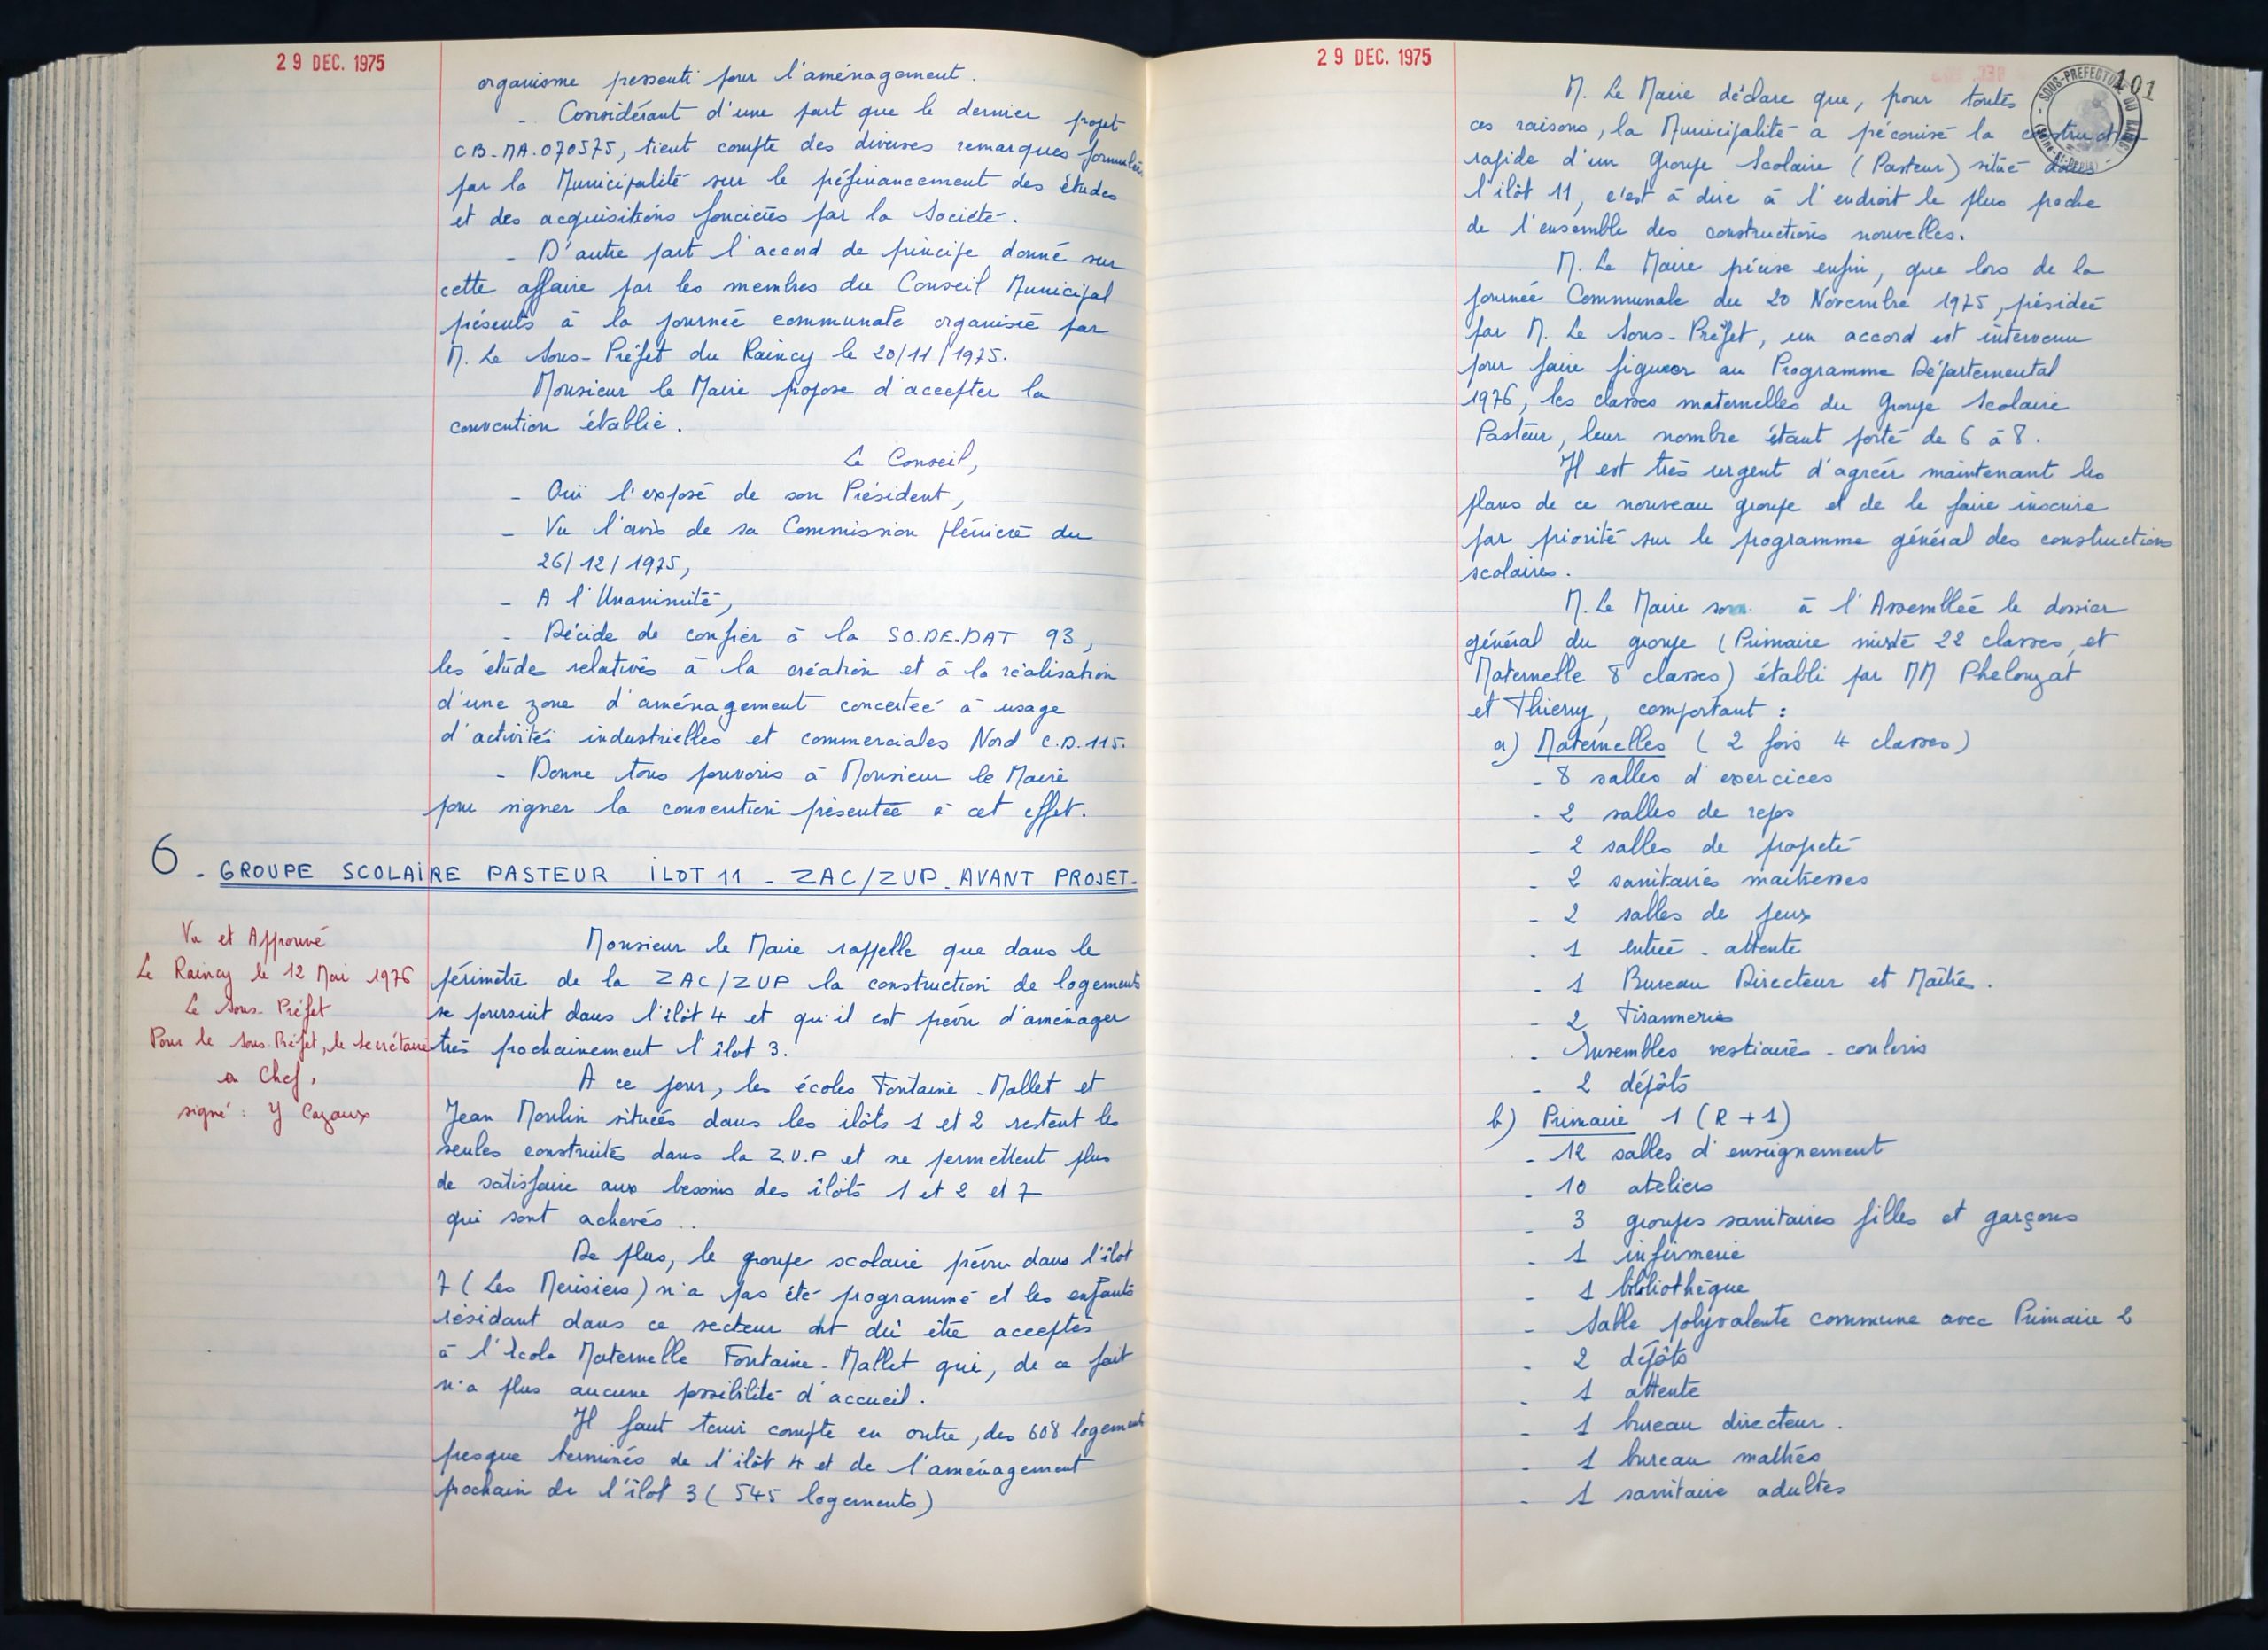 29 DEC. 1975
organisme pressenti pour l'aménagement.
- Considérant d'une part que le dernier projet
C.B-MA.070575, tient compte des diverses remarques formulées
par la Municipalité sur le préfinancement des études
et des acquisitions foncières par la Société.
- D'autre part l'accord de principe donné sur
cette affaire par les membres du Conseil Municipal
présents à la journée communale organisée par
M. Le Sous-Préfet du Raincy le 20/11/1975.
Monsieur le Maire propose d'accepter la
convention établie.
Le Conseil,
- Ouï l'exposé de son Président,
- Vu l'avis de sa Commission plénière du
26/12/1975,
- A l'Unanimité,
- Décide de confier à la SO.DE.DAT 93,
les étude relatives à la création et à la réalisation
d'une zone d'aménagement concertée à usage
d'activités industrielles et commerciales Nord C.D.115.
- Donne tous pouvoirs à Monsieur le Maire
pour signer la convention présentée à cet effet.
6 - GROUPE SCOLAIRE PASTEUR ILOT 11 - ZAC/ZUP. AVANT PROJET-
Vu et Approuvé
Le Raincy le 12 Mai 1976
Le Sous-Préfet
Pour le Sous-Préfet, le secrétaire
en Chef,
signé: Y Cazaux
Monsieur le Maire rappelle que dans le
périmètre de la ZAC/ZUP la construction de logements
se poursuit dans l'ilôt 4 et qu'il est prévu d'aménager
très prochainement l'îlot 3.
A ce jour, les écoles Fontaine-Mallet et
Jean Moulin situées dans les ilôts 1 et 2 restent les
seules construites dans la Z.U.P et ne permettent plus
de satisfaire aux besoins des îlôts 1 et 2 et 7
qui sont achevés..
De plus, le groupe scolaire prévu dans l'îlot
7 (Les Merisiers) n'a pas été programmé et les enfants
résidant dans ce secteur ont dû être acceptés
à l'Ecole Maternelle Fontaine-Mallet qui, de ce fait
n'a plus aucune possibilité d'accueil.
Il faut tenir compte en outre, des 608 logements
presque terminés de l'ilôt 4 et de l'aménagement
prochain de l'îlot 3 (545 logements)
29 DEC. 1975
101
SOUS-PREFECTURE DU RAINCY
M. Le Maire déclare que, pour toutes
ces raisons, la Municipalité a préconisé la construction
rapide d'un Groupe Scolaire (Pasteur) situé dans
l'ilôt 11, c'est à dire à l'endroit le plus proche
de l'ensemble des constructions nouvelles.
M. Le Maire précise enfin, que lors de la
Journée Communale du 20 Novembre 1975, présidée
par M. Le Sous-Préfet, un accord est intervenu
pour faire figurer au Programme Départemental
1976, les classes maternelles du Groupe Scolaire
Pasteur, leur nombre étant porté de 6 à 8.
Il est très urgent d'agréer maintenant les
plans de ce nouveau groupe et de le faire inscrire
par priorité sur le programme général des constructions
scolaires.
M. Le Maire à l'Assemblée le dossier
général du groupe (Primaire mixte 22 classes, et
Maternelle 8 classes) établi par MM Phelouzat
et Thierry, comportant :
a) Maternelles (2 fois 4 classes)
- 8 salles d'exercices
- 2 salles de repos
- 2 salles de propreté
- 2 sanitaires maitresses
- 2 salles de jeux
- 1 entrée-attente
- 1 Bureau Directeur et Maîtres.
- 2 Tisanneries
- Ensembles vestiaires-couloirs
- 2 dépôts
b) Primaire 1 (R+1)
- 12 salles d'enseignement
- 10 ateliers
- 3 groupes sanitaires filles et garçons
- 1 infirmerie
- 1 bibliothèque
- Salle polyvalente commune avec Primaire 2
- 2 dépôts
- 1 attente
- 1 bureau directeur.
- 1 bureau maîtres
- 1 sanitaire adultes